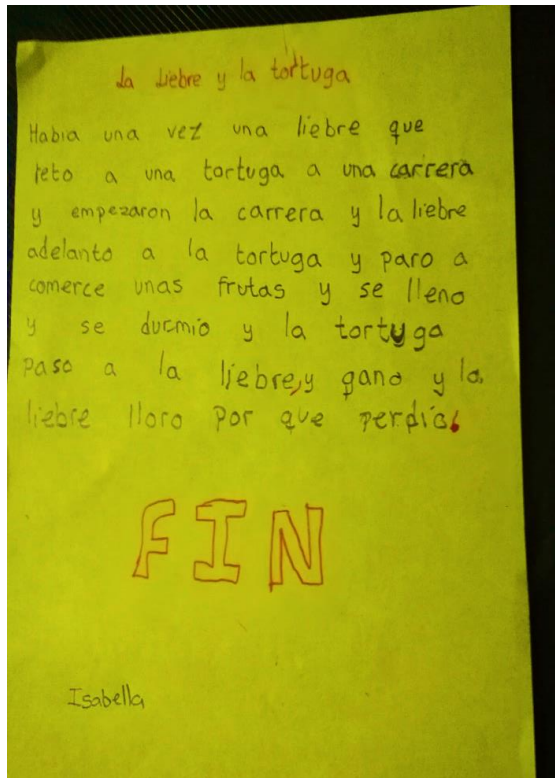 La Liebre y la tortuga
Habia una vez una liebre que
reto a una tortuga a una carrera
y empezaron la carrera y la liebre
adelanto a la tortuga y paro a
comerce unas frutas y se lleno
y se durmio y la tortuga
paso a la liebre, y gano y la
liebre lloro por que perdio.
FIN
Isabella